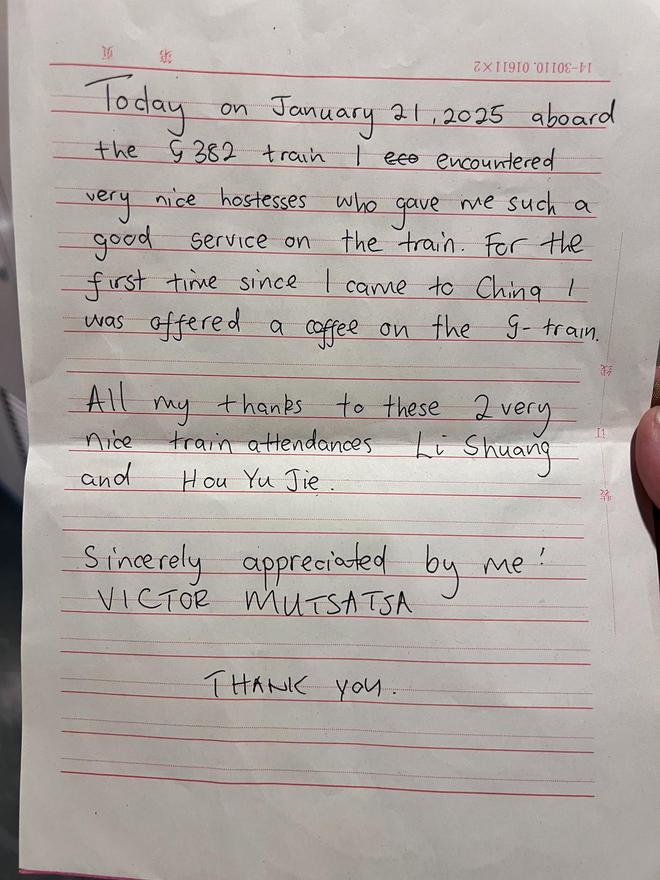 第 页
14-30110.01611×2
Today on January 21, 2025 aboard
the G382 train I eco encountered
very nice hostesses who gave me such a
good service on the train. For the
first time since I came to China I
was offered a coffee on the G-train.
线
All my thanks to these 2 very
nice train attendances Li Shuang
订
and Hou Yu Jie.
装
Sincerely appreciated by me!
VICTOR MUTSATSA
THANK YOU.